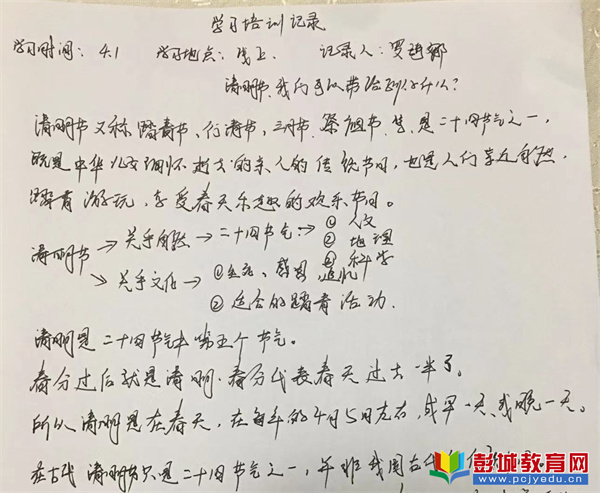 学习培训记录
学习时间：4.1 学习地点：线上. 记录人：罗
清明节，我们可以带给孩子什么？
清明节又称踏青节、行清节、三月节、祭祖节等，是二十四节气之一，
既是中华儿女缅怀逝去的亲人的传统节日，也是人们亲近自然，
踏青游玩，享受春天乐趣的欢乐节日。
清明节 → 关乎自然 → 二十四节气： ① 人文
② 地理
③ 科学
→ 关乎文化 → ① 生命、感恩、追忆
② 适合的踏青活动.
清明是二十四节气中第五个节气。
春分过后就是清明.春分代表春天过去一半了。
所以清明是在春天，在每年的4月5日左右，或早一天，或晚一天。
在古代 清明节只是二十四节气之一，并非我国古代
彭城教育网
www.pcjyedu.cn